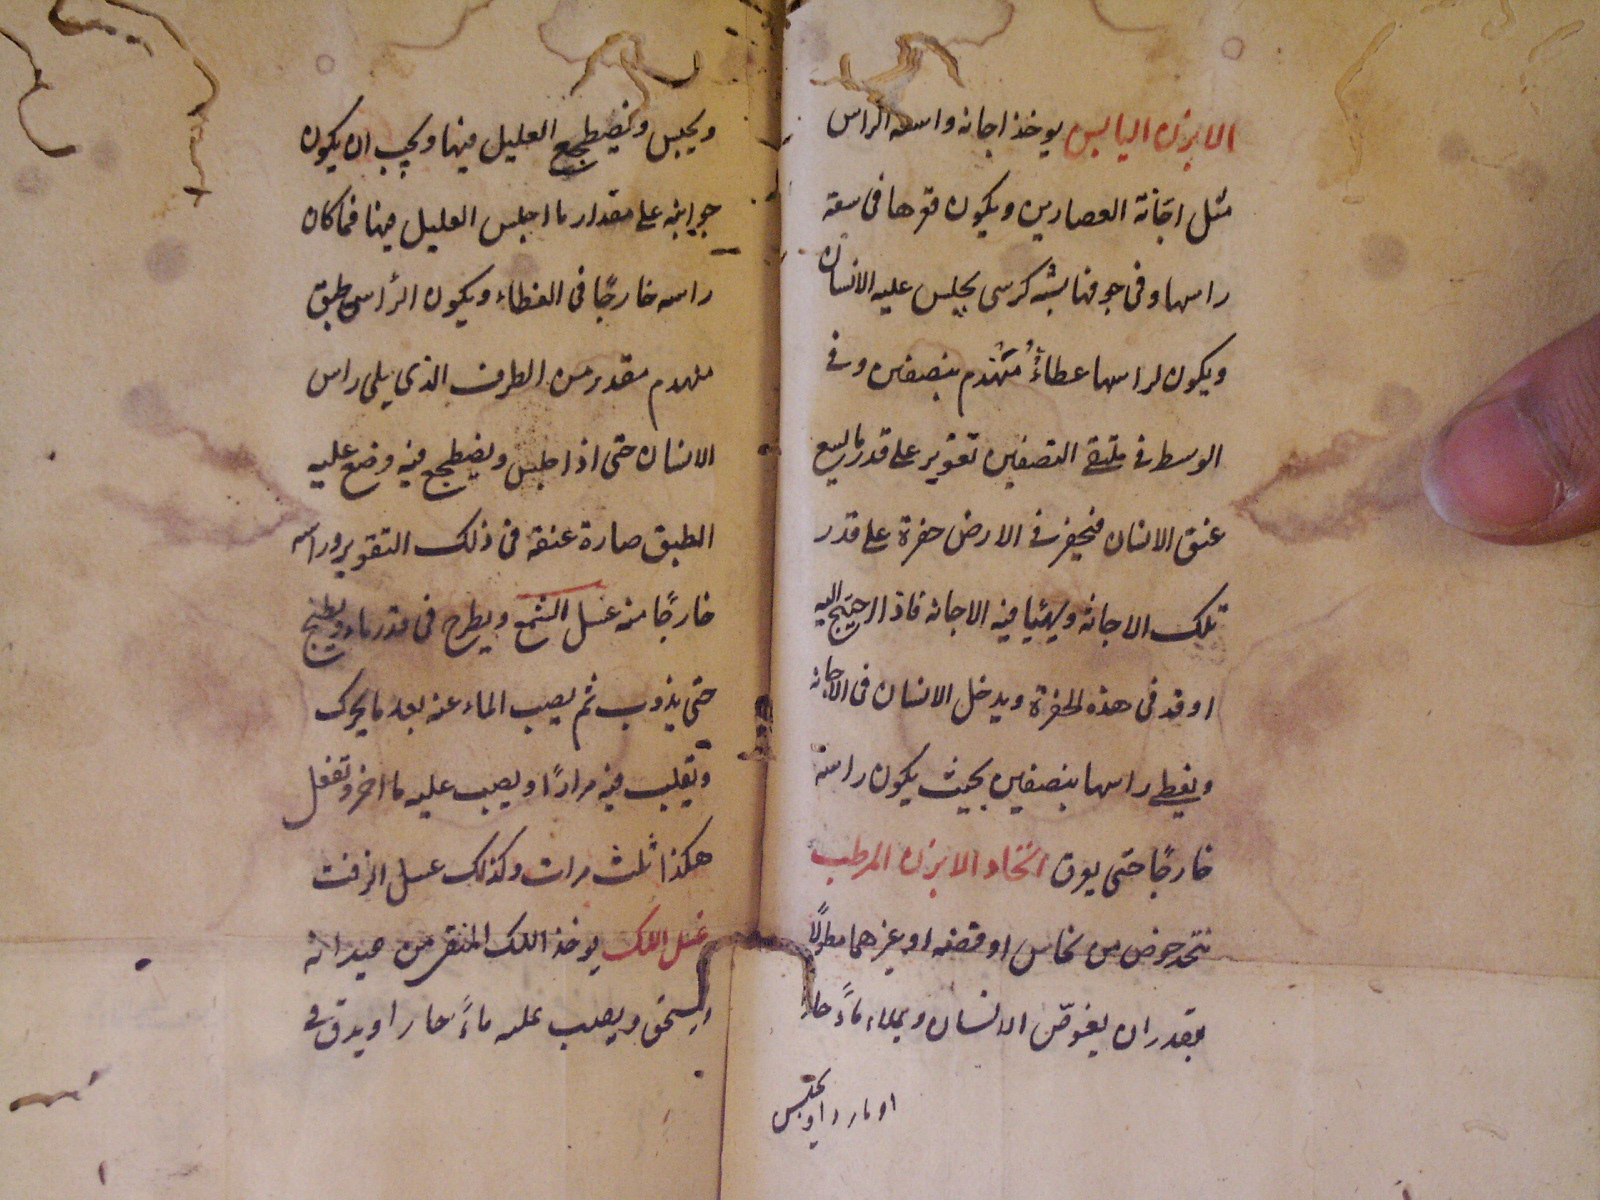 الابزن اليابس يوخذ اجانه واسعه الراس
مثل اجانة العصارين ويكون قعرها فى سعة
راسها وفى جوفها شبه كرسى يجلس عليه الانسان
ويكون لراسها عطاءٌ مُتَهندم بنصفين وفى
الوسط فى ملتقى النصفين تقوير على قدر ما يسع
عنق الانسان فيحفر فى الارض حفرة على قدر
تلك الاجانه ويهيا فيه الاجانه فاذا احتيج اليه
اوقد فى هذه الحفرة ويدخل الانسان فى الاجانه
ويغطى راسها بنصفين بحيث يكون راسه
خارجًا حتى يعرق اتخاد الابزن المرطب
يتخد حوض من نحاس او فضه او غيرهما مطولًا
بقدر ان يغوّص الانسان ويملاء ماءً حارا
او باردا ويحتبس
ويجبس ويضطجع العليل فيها ويجب ان يكون
جوانبه على مقدار ما اجلس العليل فيها فما كان
راسه خارجًا فى الغطاء ويكون الرأس طبق
مهندم مقدر من الطرف الذى يلى راس
الانسان حتى اذا جلس ويضطجع فيه وضع عليه
الطبق صارة عنقه فى ذلك التقوير وراسه
خارجًا منه غسل الشمع ويطرح فى قدر ماء ويطبخ
حتى يذوب ثم يصب الماء عنه بعد ما يحرك
ويقلب فيه مرارًا ويصب عليه ما اخر وتفعل
هكذا ثلث مرات وكذلك غسل الزفت
غسل اللك يوخذ اللك المنقى من عيدانه
ويسحق ويصب عليه ماءً حارا ويدق فى